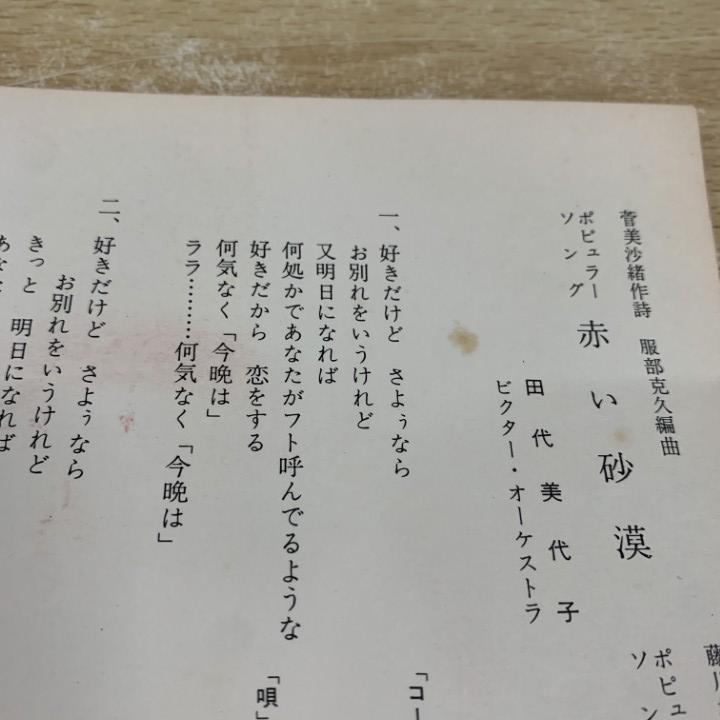 菅美沙緒作詩　服部克久編曲
ポピュラー
ソング
赤い砂漠
田代美代子
ビクター・オーケストラ
一、好きだけど　さようなら
お別れをいうけれど
又明日になれば
何処かであなたがフト呼んでるような
好きだから　恋をする
何気なく「今晩は」
ララ………何気なく「今晩は」
二、好きだけど　さようなら
お別れをいうけれど
きっと　明日になれば
ポピュ
ソン
「コー
「唄」